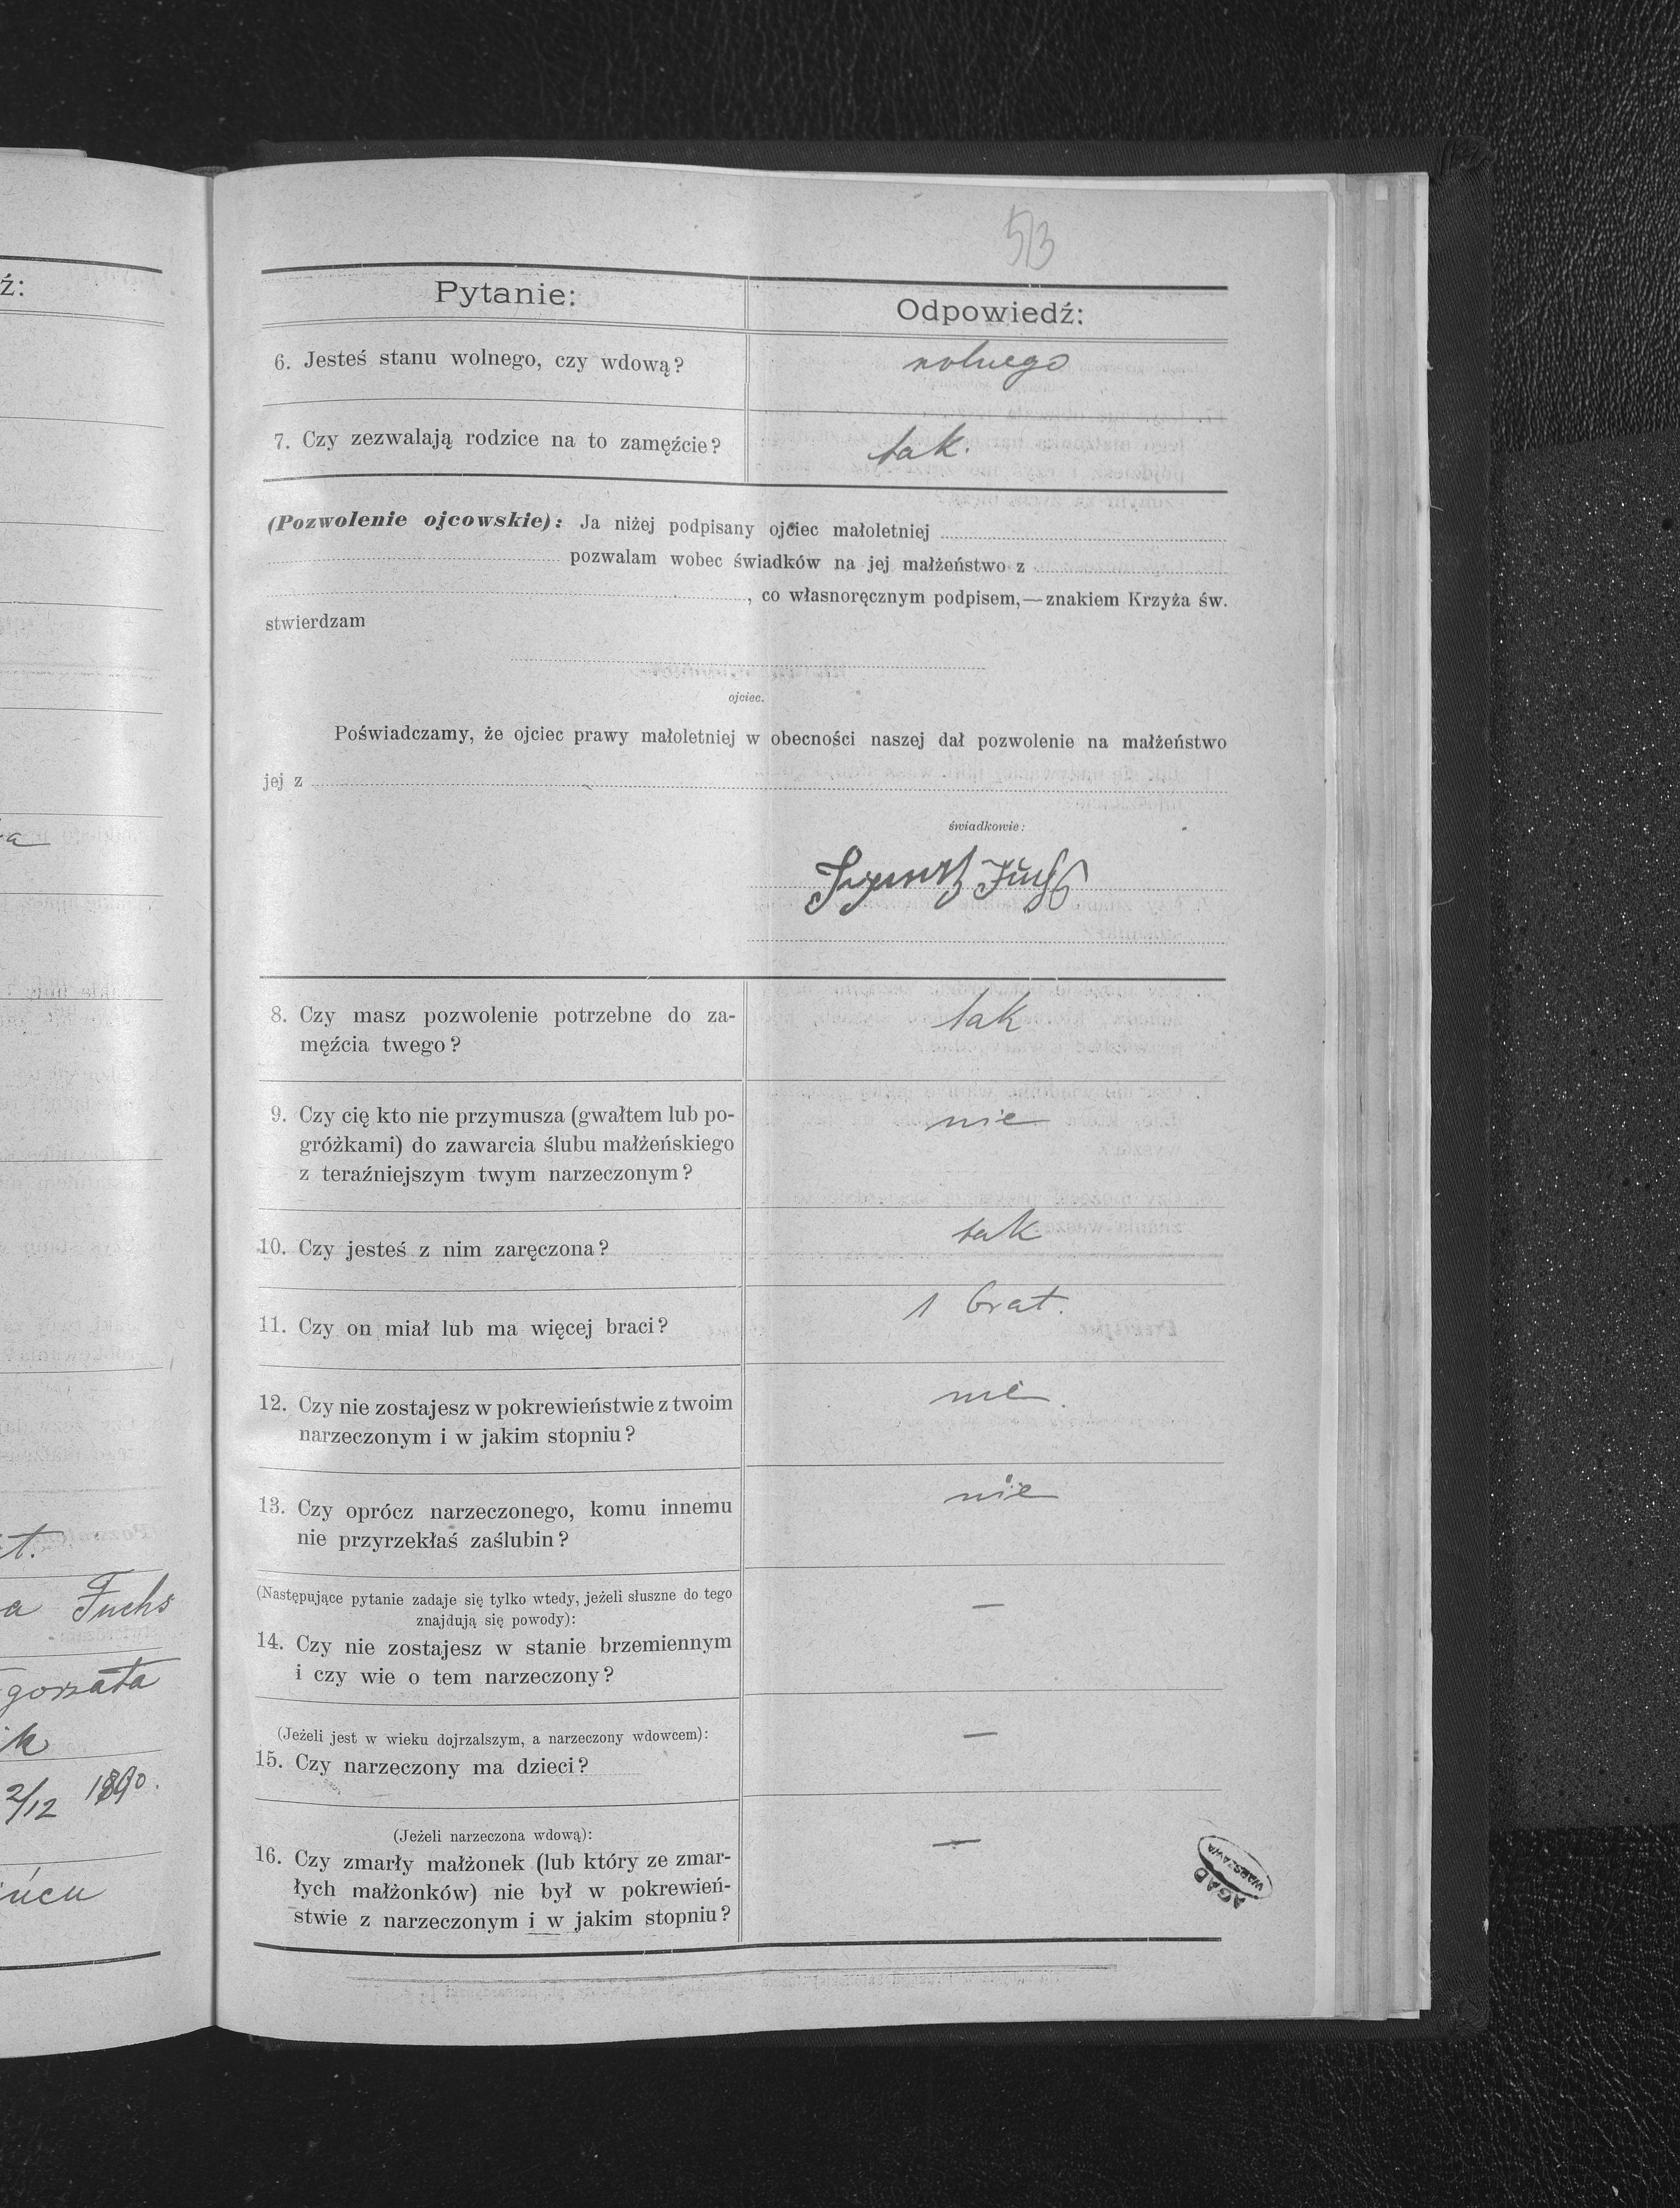 ź:
a
t.
a Fuchs
gorzata
ik
2/12 1890.
ńcu
53
Pytanie:
Odpowiedź:
6. Jesteś stanu wolnego, czy wdową?
wolnego
7. Czy zezwalają rodzice na to zamęźcie?
tak.
(Pozwolenie ojcowskie): Ja niżej podpisany ojciec małoletniej
pozwalam wobec świadków na jej małżeństwo z
, co własnoręcznym podpisem,—znakiem Krzyża św.
stwierdzam
ojciec.
Poświadczamy, że ojciec prawy małoletniej w obecności naszej dał pozwolenie na małżeństwo
jej z
świadkowie:
Fuchs
8. Czy masz pozwolenie potrzebne do za-
męźcia twego?
tak
9. Czy cię kto nie przymusza (gwałtem lub po-
gróżkami) do zawarcia ślubu małżeńskiego
z teraźniejszym twym narzeczonym?
nie
10. Czy jesteś z nim zaręczona?
tak
11. Czy on miał lub ma więcej braci?
1 brat.
12. Czy nie zostajesz w pokrewieństwie z twoim
narzeczonym i w jakim stopniu?
nie.
13. Czy oprócz narzeczonego, komu innemu
nie przyrzekłaś zaślubin?
nie
(Następujące pytanie zadaje się tylko wtedy, jeżeli słuszne do tego
znajdują się powody):
14. Czy nie zostajesz w stanie brzemiennym
i czy wie o tem narzeczony?
—
(Jeżeli jest w wieku dojrzalszym, a narzeczony wdowcem):
15. Czy narzeczony ma dzieci?
—
(Jeżeli narzeczona wdową):
16. Czy zmarły małżonek (lub który ze zmar-
łych małżonków) nie był w pokrewień-
stwie z narzeczonym i w jakim stopniu?
—
AGAD
WARSZAWA